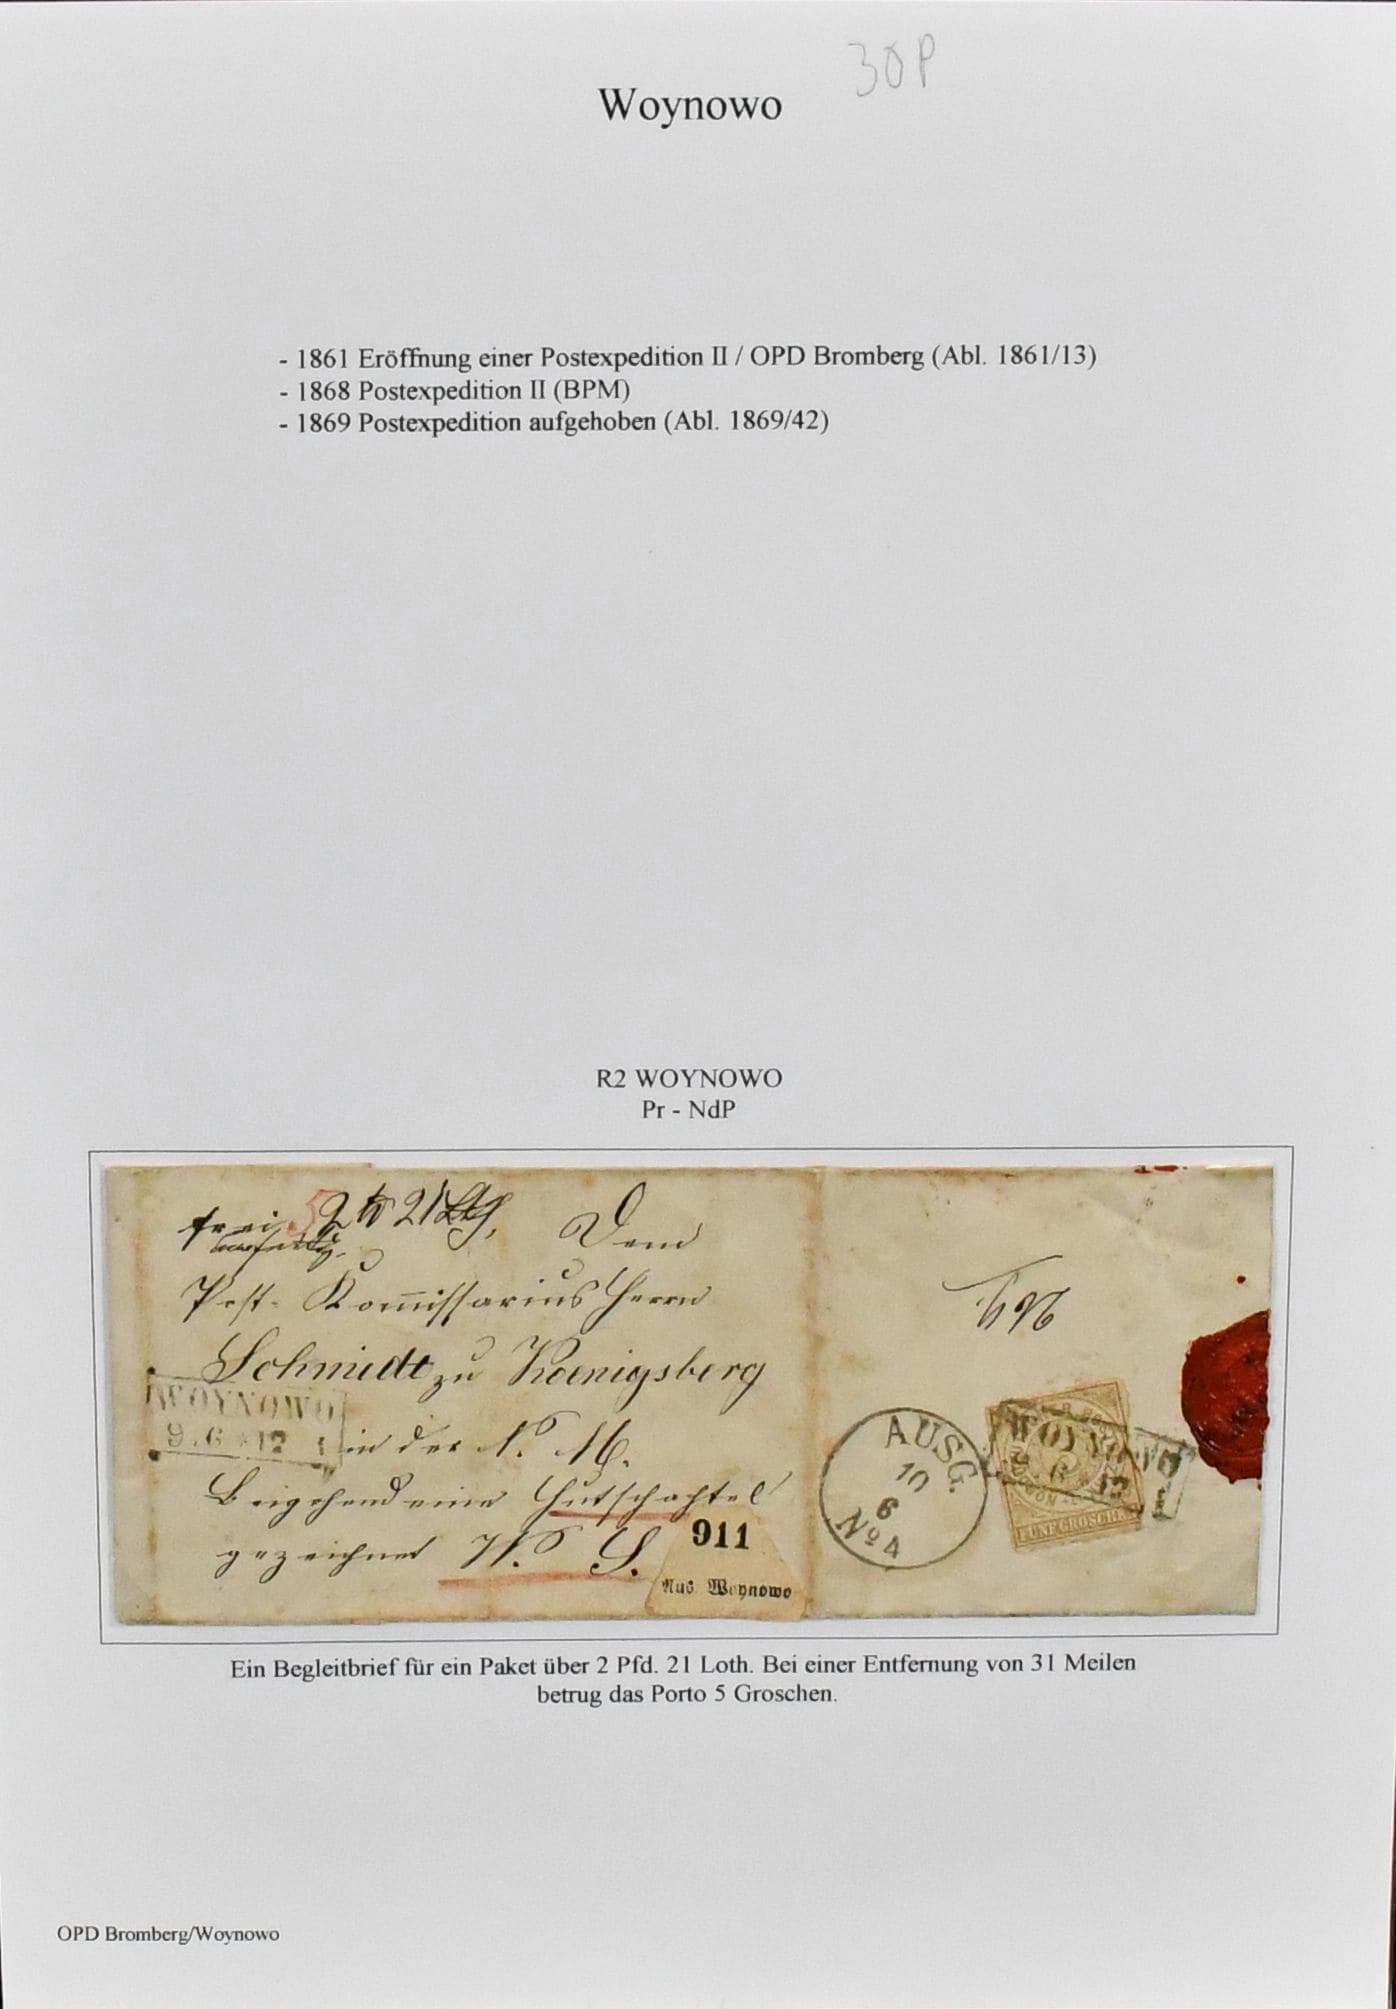 30P
Woynowo
- 1861 Eröffnung einer Postexpedition II / OPD Bromberg (Abl. 1861/13)
- 1868 Postexpedition II (BPM)
- 1869 Postexpedition aufgehoben (Abl. 1869/42)
R2 WOYNOWO
Pr - NdP
frei 5 2 21
Dem
Post-Kom̅issarius Herrn
Schmidt zu Koenigsberg
in der N. M.
Beigehend eine Hutschachtel
gezeichnet W. S.
WOYNOWO
9.6 * 12
911
Aus Woynowo
AUSG.
10
6
No 4
WOYNOWO
6 * 12
FÜNF GROSCHEN
Ein Begleitbrief für ein Paket über 2 Pfd. 21 Loth. Bei einer Entfernung von 31 Meilen
betrug das Porto 5 Groschen.
OPD Bromberg/Woynowo